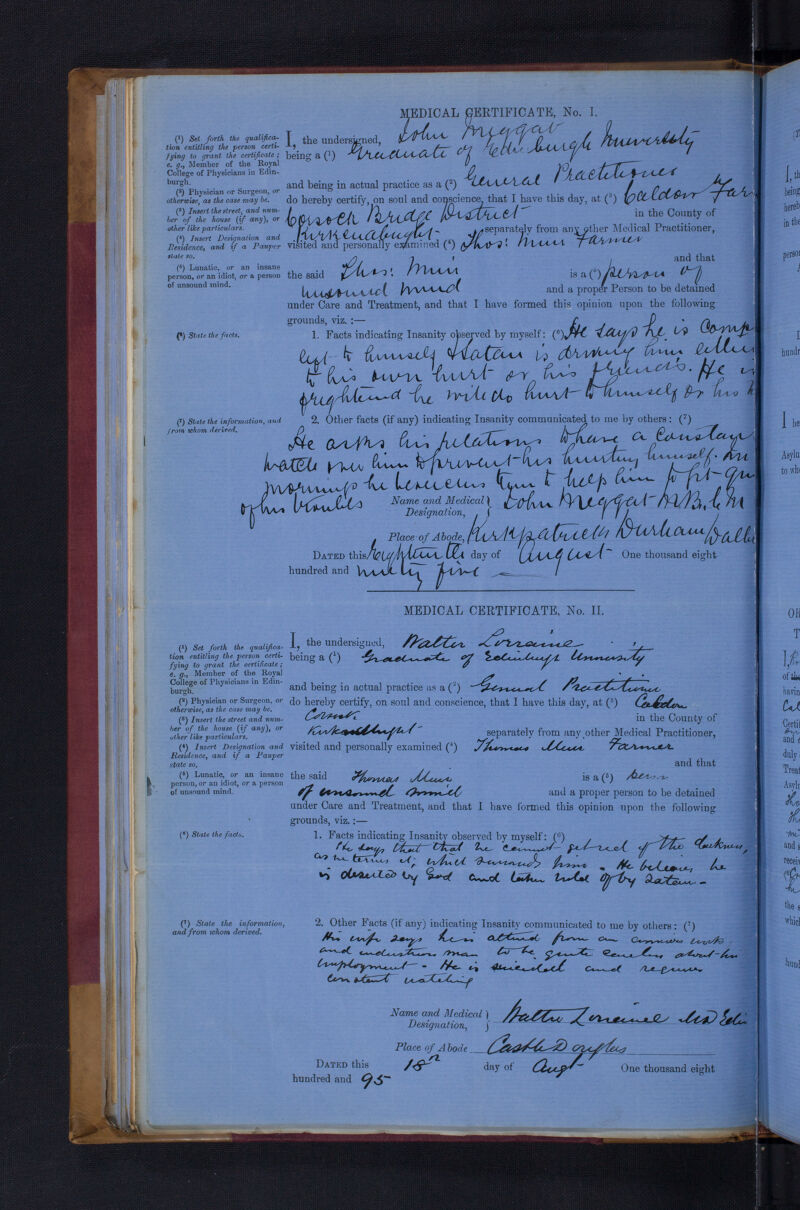 MEDICAL CERTIFICATE, No. I.
(¹) Set forth the qualifica-
tion entitling the person certi-
fying to grant the certificate;
e. g., Member of the Royal
College of Physicians in Edin-
burgh.
(²) Physician or Surgeon, or
otherwise, as the case may be.
(³) Insert the street, and num-
ber of the house (if any), or
other like particulars.
(⁴) Insert Designation and
Residence, and if a Pauper
state so.
(⁵) Lunatic, or an insane
person, or an idiot, or a person
of unsound mind.
I, the undersigned, John Meggat
being a (¹) Graduate of Edinburgh University
and being in actual practice as a (²) General Practitioner
do hereby certify, on soul and conscience, that I have this day, at (³) Caldow Far
Corsock Bridge District in the County of
Kirkcudbright separately from any other Medical Practitioner,
visited and personally examined (⁴) Thos: Muir Farmer
and that
the said Thos: Muir is a (⁵) person of
unsound mind and a proper Person to be detained
under Care and Treatment, and that I have formed this opinion upon the following
grounds, viz. :—
(⁶) State the facts.
1. Facts indicating Insanity observed by myself: (⁶) He says he is Comp
lost to himself & Satan is driving him either
to his own hurt or his friends. He is
frightened he will do hurt to himself or his
(⁷) State the information, and
from whom derived.
2. Other facts (if any) indicating Insanity communicated to me by others: (⁷)
He asks his relations to have a Constant
watch over him to prevent his hurting himself. In
mornings he beseeches them to help him to get
of his troubles
Name and Medical Designation, John Meggat M.B. C.M
Place of Abode, Kirkpatrick Durham Dalb
DATED this Eighteenth day of August One thousand eight
hundred and ninety five
MEDICAL CERTIFICATE, No. II.
(¹) Set forth the qualifica-
tion entitling the person certi-
fying to grant the certificate;
e. g., Member of the Royal
College of Physicians in Edin-
burgh.
(²) Physician or Surgeon, or
otherwise, as the case may be.
(³) Insert the street and num-
ber of the house (if any), or
other like particulars.
(⁴) Insert Designation and
Residence, and if a Pauper
state so.
(⁵) Lunatic, or an insane
person, or an idiot, or a person
of unsound mind.
I, the undersigned, Walter Lorraine
being a (¹) Graduate of Edinburgh University
and being in actual practice as a (²) General Practitioner
do hereby certify, on soul and conscience, that I have this day, at (³) Caledon
Corsock in the County of
Kirkcudbright separately from any other Medical Practitioner,
visited and personally examined (⁴) Thomas Muir Farmer
and that
the said Thomas Muir is a (⁵) person
of unsound mind and a proper person to be detained
under Care and Treatment, and that I have formed this opinion upon the following
grounds, viz. :—
(⁶) State the facts.
1. Facts indicating Insanity observed by myself: (⁶)
He says that that he cannot get rid of the darkness,
as he terms it, which surrounds him - He believes he
is deserted by God and taken hold of by Satan -
(⁷) State the information,
and from whom derived.
2. Other Facts (if any) indicating Insanity communicated to me by others: (⁷)
His wife says he is altered from an
and industrious man to be quite careless about his
employment - He is suicidal and requires
constant watching
Name and Medical Designation, Walter Lorraine MD Edin
Place of Abode Castle Douglas
DATED this 18th day of Augt One thousand eight
hundred and 95